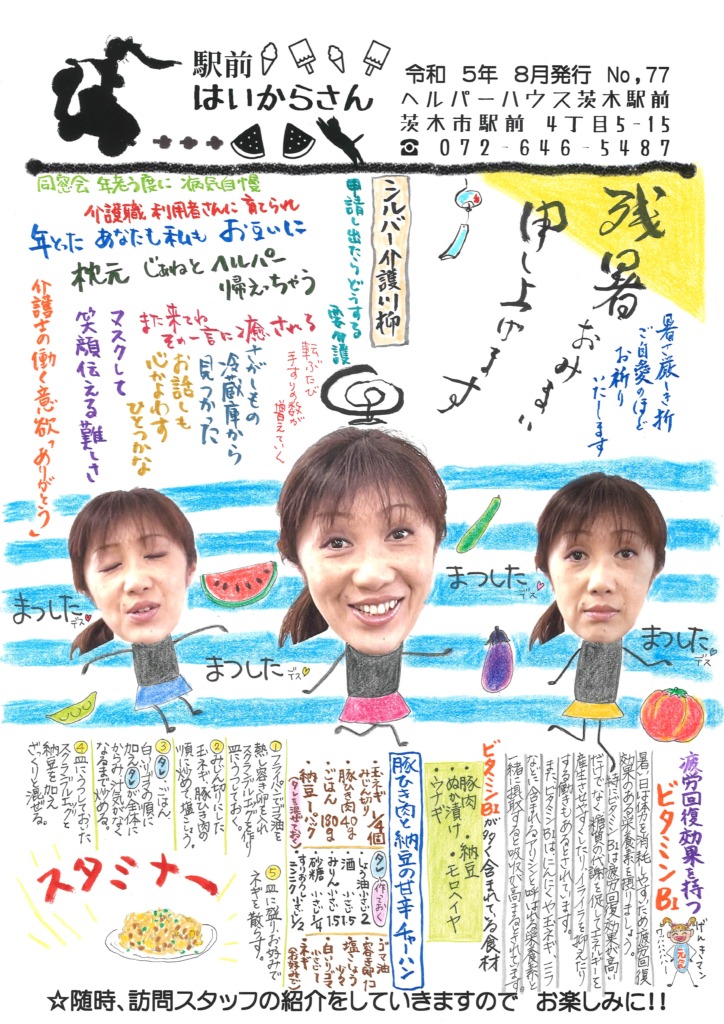 駅前
はいからさん
令和 5年 8月発行 No,77
ヘルパーハウス茨木駅前
茨木市駅前 4丁目5-15
☎ 072-646-5487
残暑
おみまい
申し上げます
暑さ厳しき折
ご自愛のほど
お祈り
いたします
シルバー介護川柳
申請し出たらどうする
要介護
同窓会 年老う度に 病気自慢
介護職 利用者さんに 育てられ
年とった あなたも私も お互いに
枕元 じゃねと ヘルパー
帰えっちゃう
また来てね
その一言に 癒される
転ぶたび
手すりの数が
増えていく
さがしもの
冷蔵庫から
見つかった
お話しも
心かよわす
ひとつかな
マスクして
笑顔伝える難しさ
介護士の働く意欲「ありがとう」
まつした
デス
まつした
デス
まつした
デス
まつした
デス
疲労回復効果を持つ
ビタミンB1
げんきマン
元気
暑い日は体力を消耗しやすいため疲労回復
効果のある栄養素を摂りましょう。
特にビタミンB1は疲労回復効果が高い
だけでなく、糖質の代謝を促してエネルギーを
産生させやすくしたり、イライラを抑えたり
する働きもあるとされています。
また、ビタミンB1はにんにくや玉ネギ、ニラ
などに含まれるアリシンと呼ばれる栄養素と
一緒に摂取すると吸収率が高まるとされてます。
ビタミンB1が多く含まれている食材
・豚肉 ・納豆
・ぬか漬け ・モロヘイヤ
・ウナギ
豚ひき肉と納豆の甘辛チャーハン
・玉ネギ 1/4個
みじん切り
・豚ひき肉 40g
・ごはん 180g
・納豆 1パック
(タレを混ぜておく)
タレ 作っておく
しょう油 小さじ2
酒 小さじ1.5
みりん 小さじ1.5
砂糖 小さじ1/4
すりおろし 小さじ1/2
ニンニク
・ゴマ油
・溶き卵 1コ
・塩こしょう 少々
・白いりゴマ 小さじ1
・ネギ
(お好みで)
① フライパンにゴマ油を
熱し溶き卵を入れ
スクランブルエッグを作り
皿にうつしておく。
② みじん切りにした
玉ネギ、豚ひき肉の
順に炒めて、塩こしょう。
③ タレ、ごはん
白いりゴマの順に
加え、タレが全体に
からみ、汁気がなく
なるまで炒める。
④ 皿にうつしておいた
スクランブルエッグと
納豆を加え
ざっくりと混ぜる。
⑤ 皿に盛り、お好みで
ネギを散らす。
スタミナー
☆随時、訪問スタッフの紹介をしていきますので お楽しみに!!